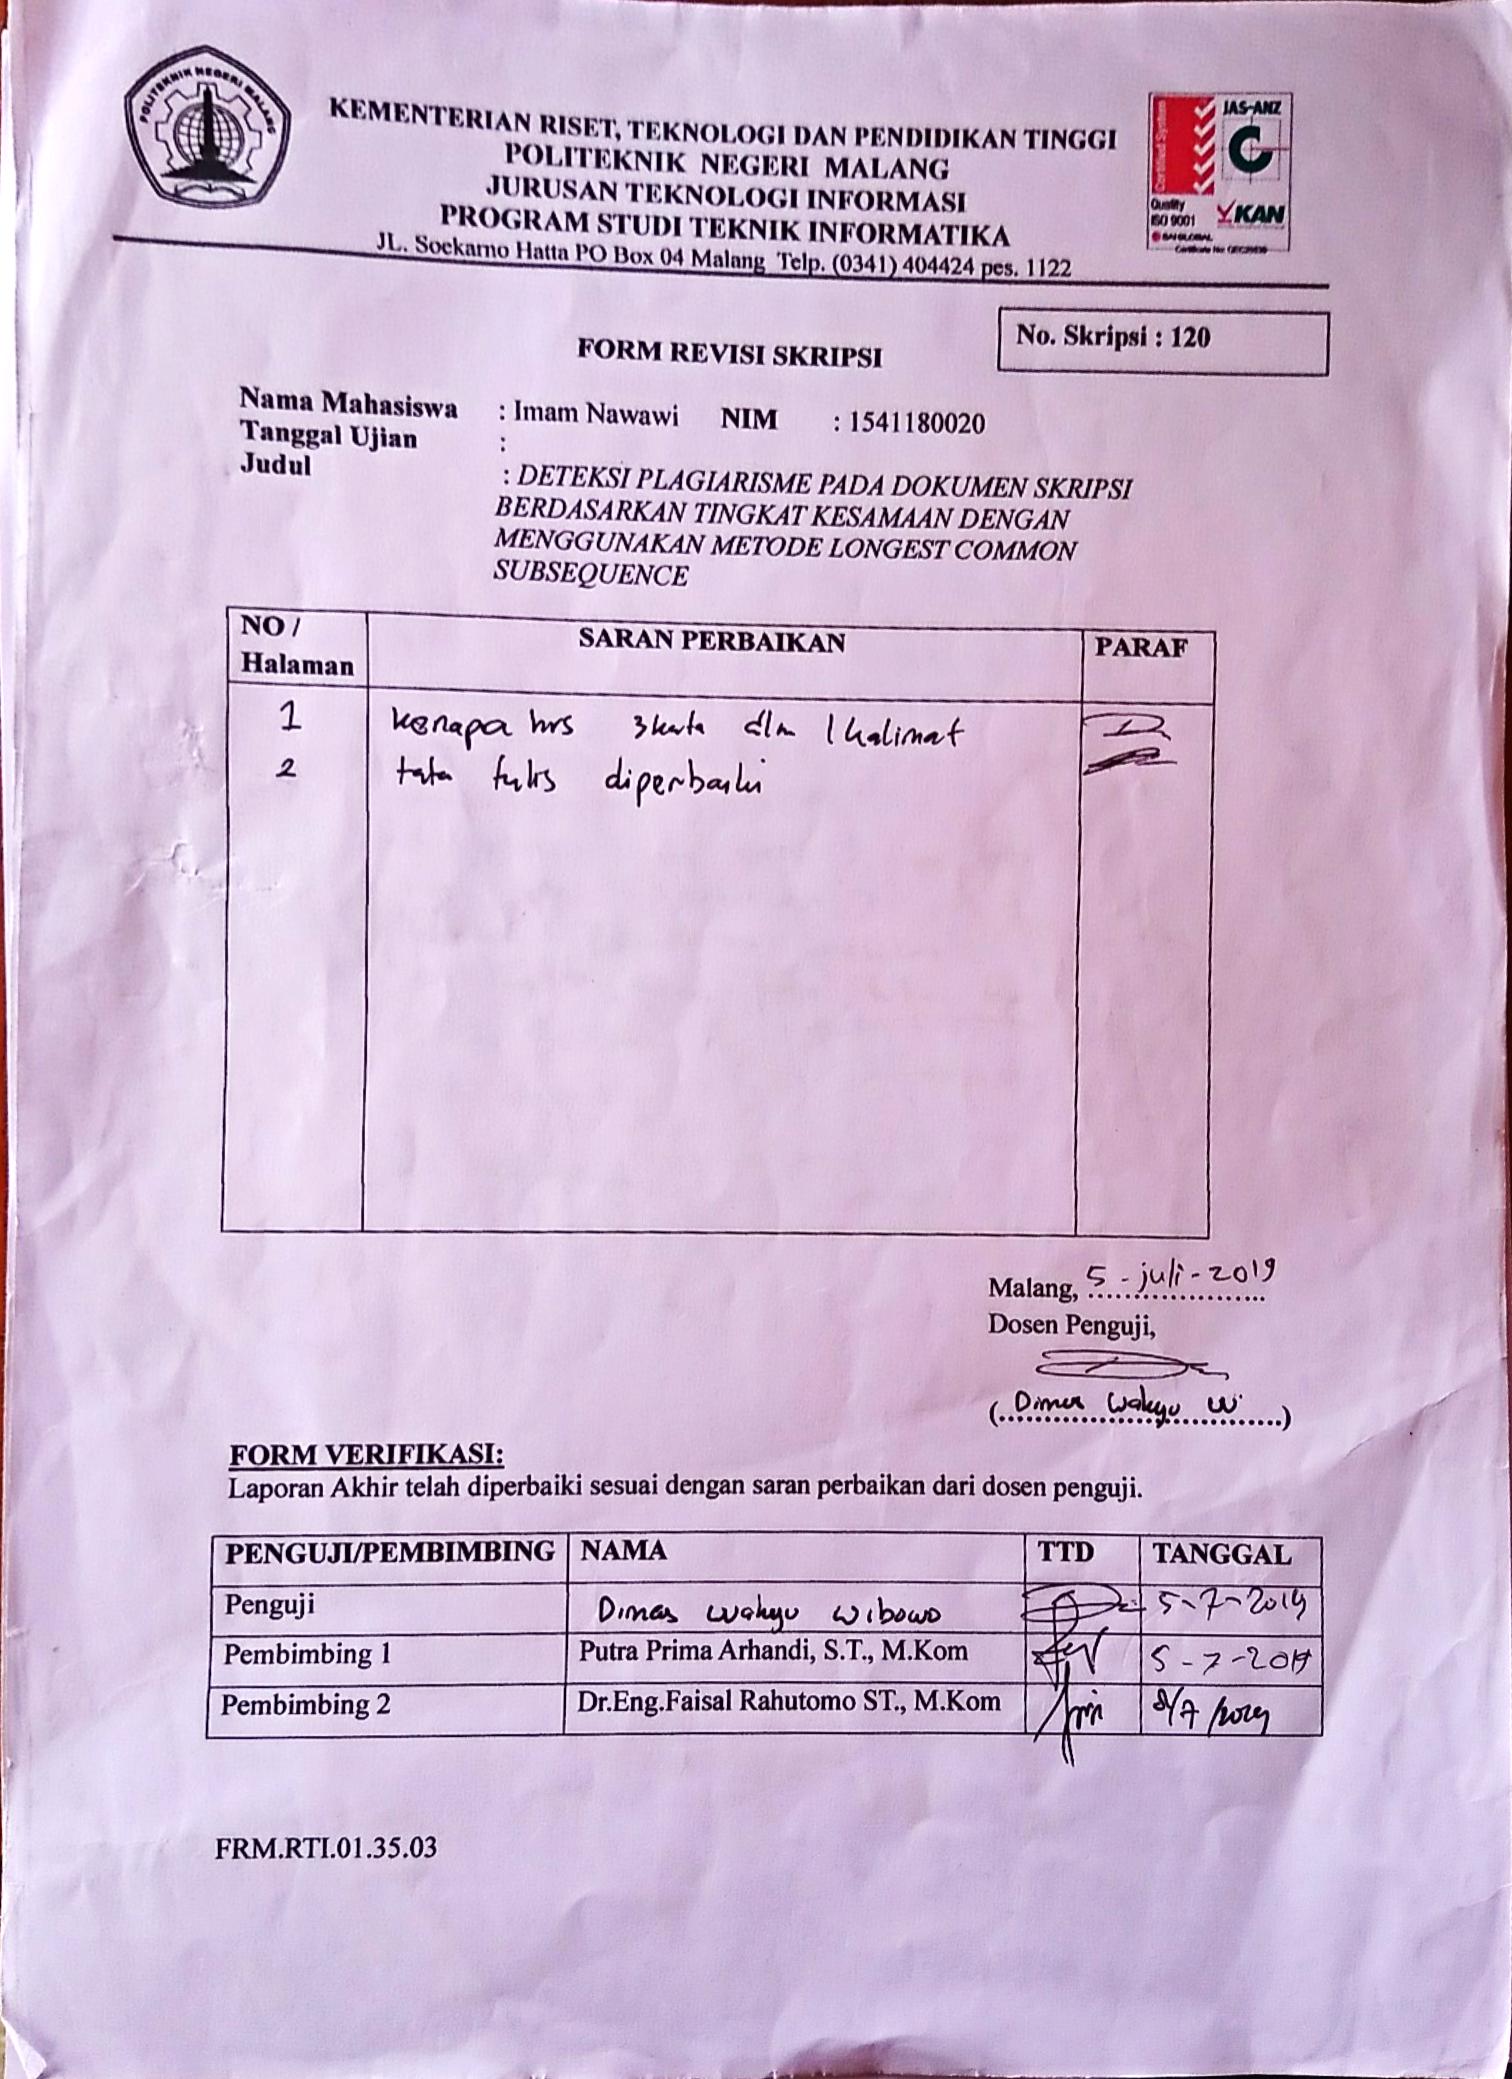 POLITEKNIK NEGERI MALANG
KEMENTERIAN RISET, TEKNOLOGI DAN PENDIDIKAN TINGGI
POLITEKNIK NEGERI MALANG
JURUSAN TEKNOLOGI INFORMASI
PROGRAM STUDI TEKNIK INFORMATIKA
JL. Soekarno Hatta PO Box 04 Malang Telp. (0341) 404424 pes. 1122
Certified System
JAS-ANZ
Quality
ISO 9001
KAN
SAI GLOBAL
No. Skripsi : 120
FORM REVISI SKRIPSI
Nama Mahasiswa : Imam Nawawi NIM : 1541180020
Tanggal Ujian :
Judul : DETEKSI PLAGIARISME PADA DOKUMEN SKRIPSI
BERDASARKAN TINGKAT KESAMAAN DENGAN
MENGGUNAKAN METODE LONGEST COMMON
SUBSEQUENCE
NO / SARAN PERBAIKAN PARAF
Halaman
1 kenapa hrs 3 kata dlm 1 kalimat
2 tata tulis diperbaiki
Malang, 5 - juli - 2019
Dosen Penguji,
(Dimas Wahyu W)
FORM VERIFIKASI:
Laporan Akhir telah diperbaiki sesuai dengan saran perbaikan dari dosen penguji.
PENGUJI/PEMBIMBING NAMA TTD TANGGAL
Penguji Dimas Wahyu Wibowo 5-7-2019
Pembimbing 1 Putra Prima Arhandi, S.T., M.Kom 5-7-2019
Pembimbing 2 Dr.Eng.Faisal Rahutomo ST., M.Kom
FRM.RTI.01.35.03